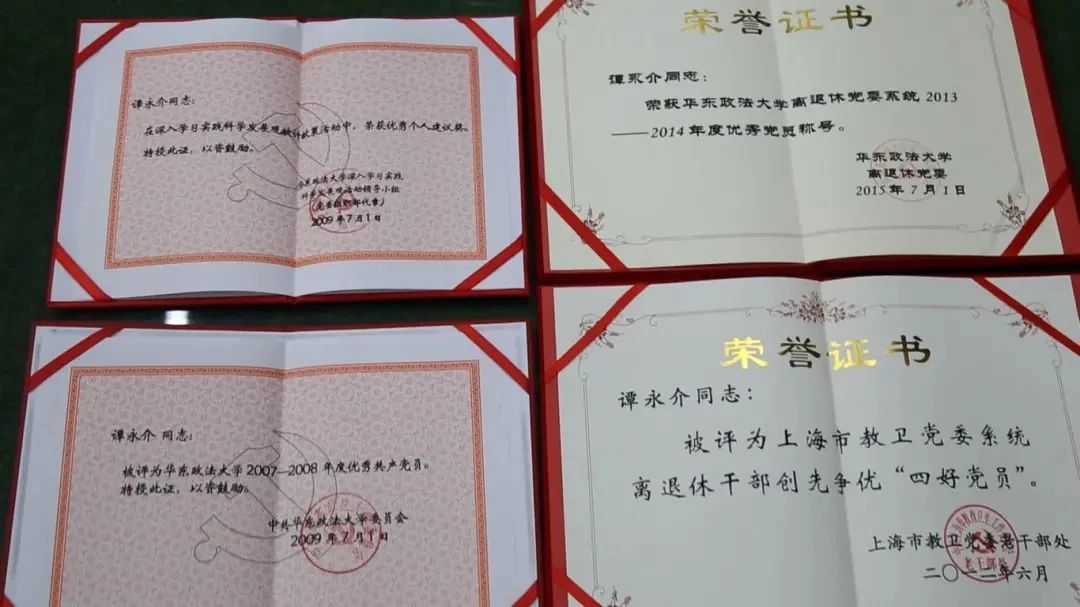 谭永介同志：
在深入学习实践科学发展观献计献策活动中，荣获优秀个人建议奖。
特授此证，以资鼓励。
华东政法大学深入学习实践
科学发展观活动领导小组
（党委组织部代章）
2009年7月1日
荣誉证书
谭永介同志：
荣获华东政法大学离退休党委系统2013
——2014年度优秀党员称号。
华东政法大学
离退休党委
2015年7月1日
谭永介 同志：
被评为华东政法大学2007—2008年度优秀共产党员。
特授此证，以资鼓励。
中共华东政法大学委员会
2009年7月1日
荣誉证书
谭永介同志：
被评为上海市教卫党委系统
离退休干部创先争优“四好党员”。
上海市教卫党委老干部处
二〇一二年六月
老干部处